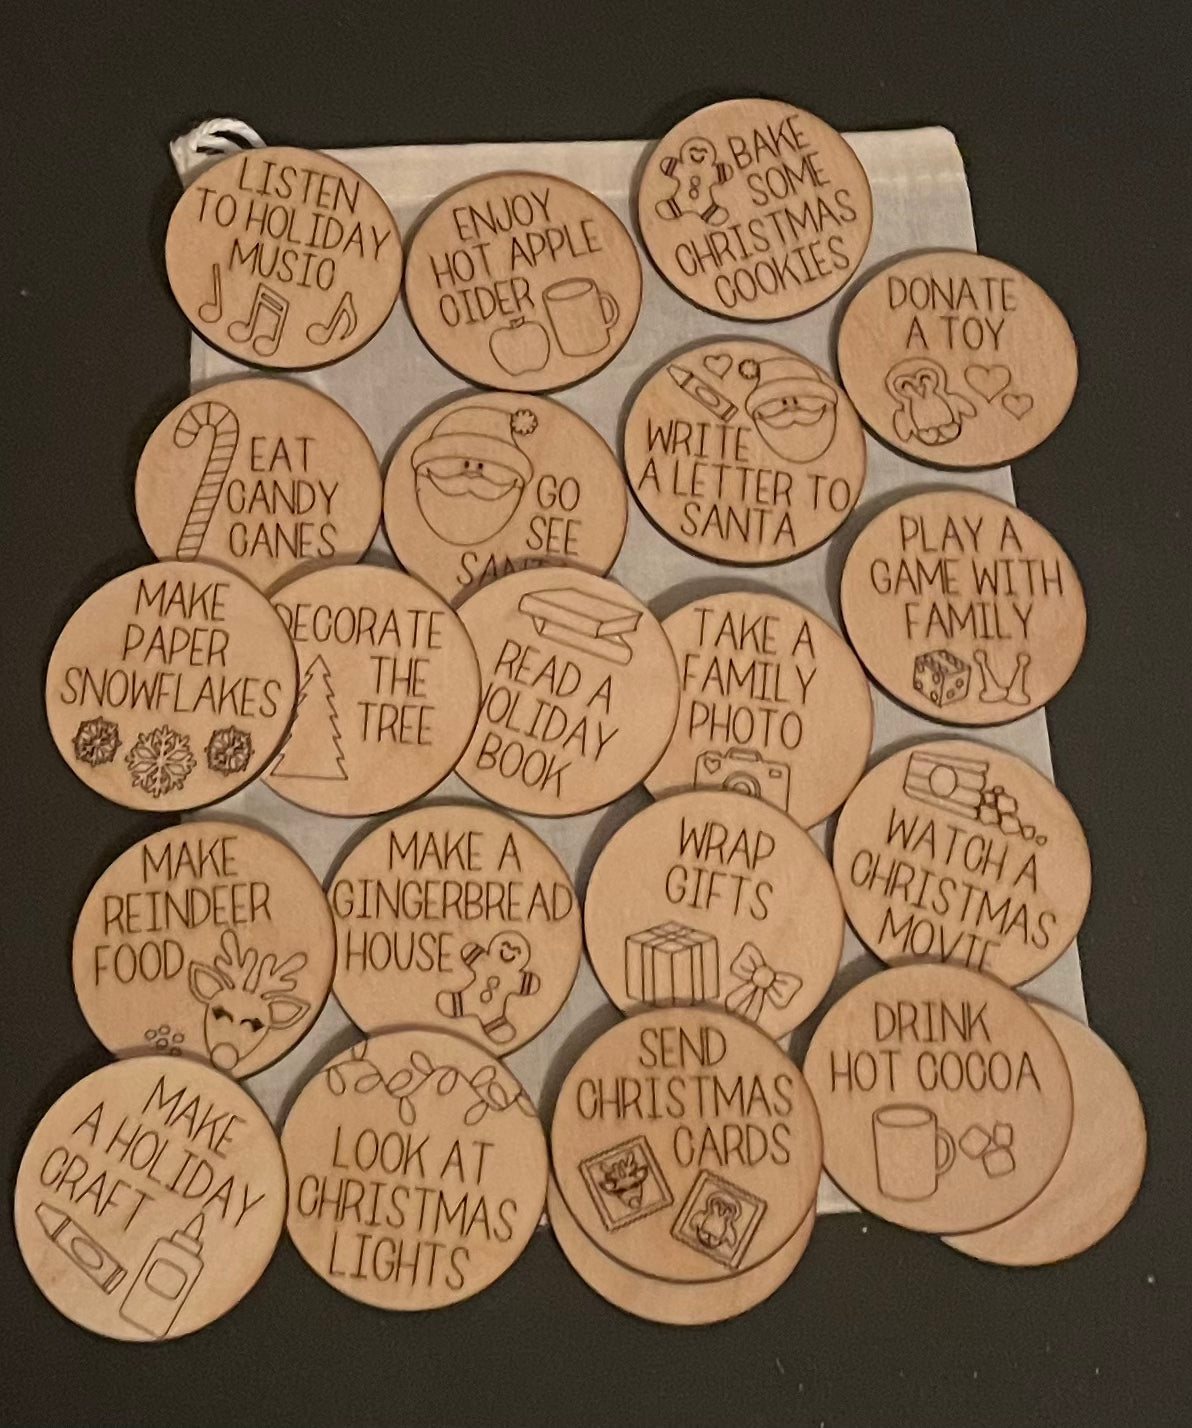 LISTEN
TO HOLIDAY
MUSIC
ENJOY
HOT APPLE
CIDER
BAKE
SOME
CHRISTMAS
COOKIES
DONATE
A TOY
EAT
CANDY
CANES
GO
SEE
SANTA
WRITE
A LETTER TO
SANTA
PLAY A
GAME WITH
FAMILY
MAKE
PAPER
SNOWFLAKES
DECORATE
THE
TREE
READ A
HOLIDAY
BOOK
TAKE A
FAMILY
PHOTO
WATCH A
CHRISTMAS
MOVIE
MAKE
REINDEER
FOOD
MAKE A
GINGERBREAD
HOUSE
WRAP
GIFTS
DRINK
HOT COCOA
MAKE
A HOLIDAY
CRAFT
LOOK AT
CHRISTMAS
LIGHTS
SEND
CHRISTMAS
CARDS